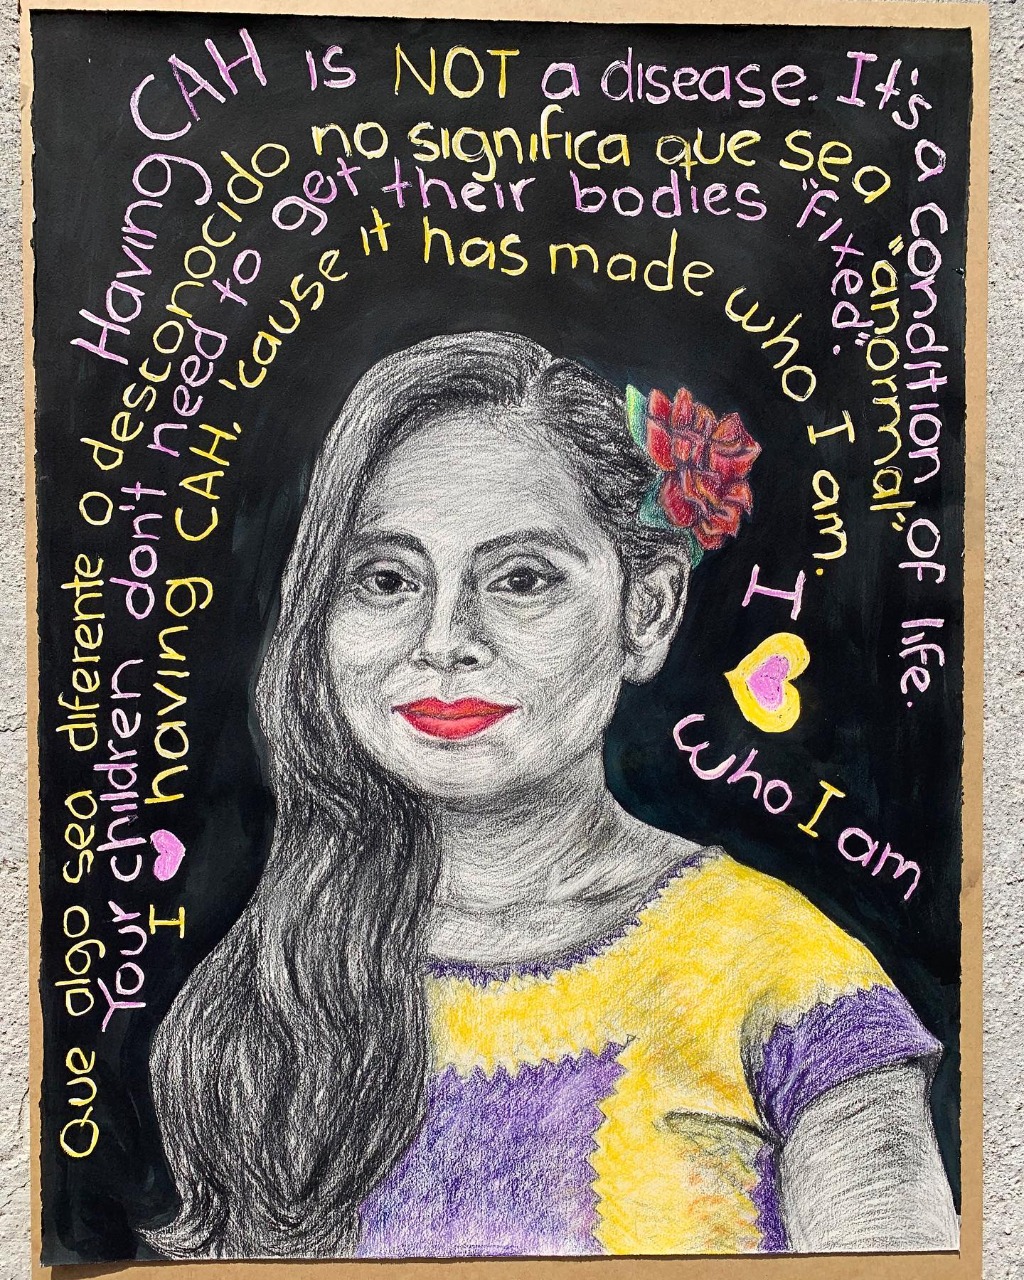 Having CAH is NOT a disease. It's a condition of life.
Que algo sea diferente o desconocido no significa que sea "anormal"
Your children don't need to get their bodies "fixed".
I having CAH, 'cause it has made who I am.
I
who I am